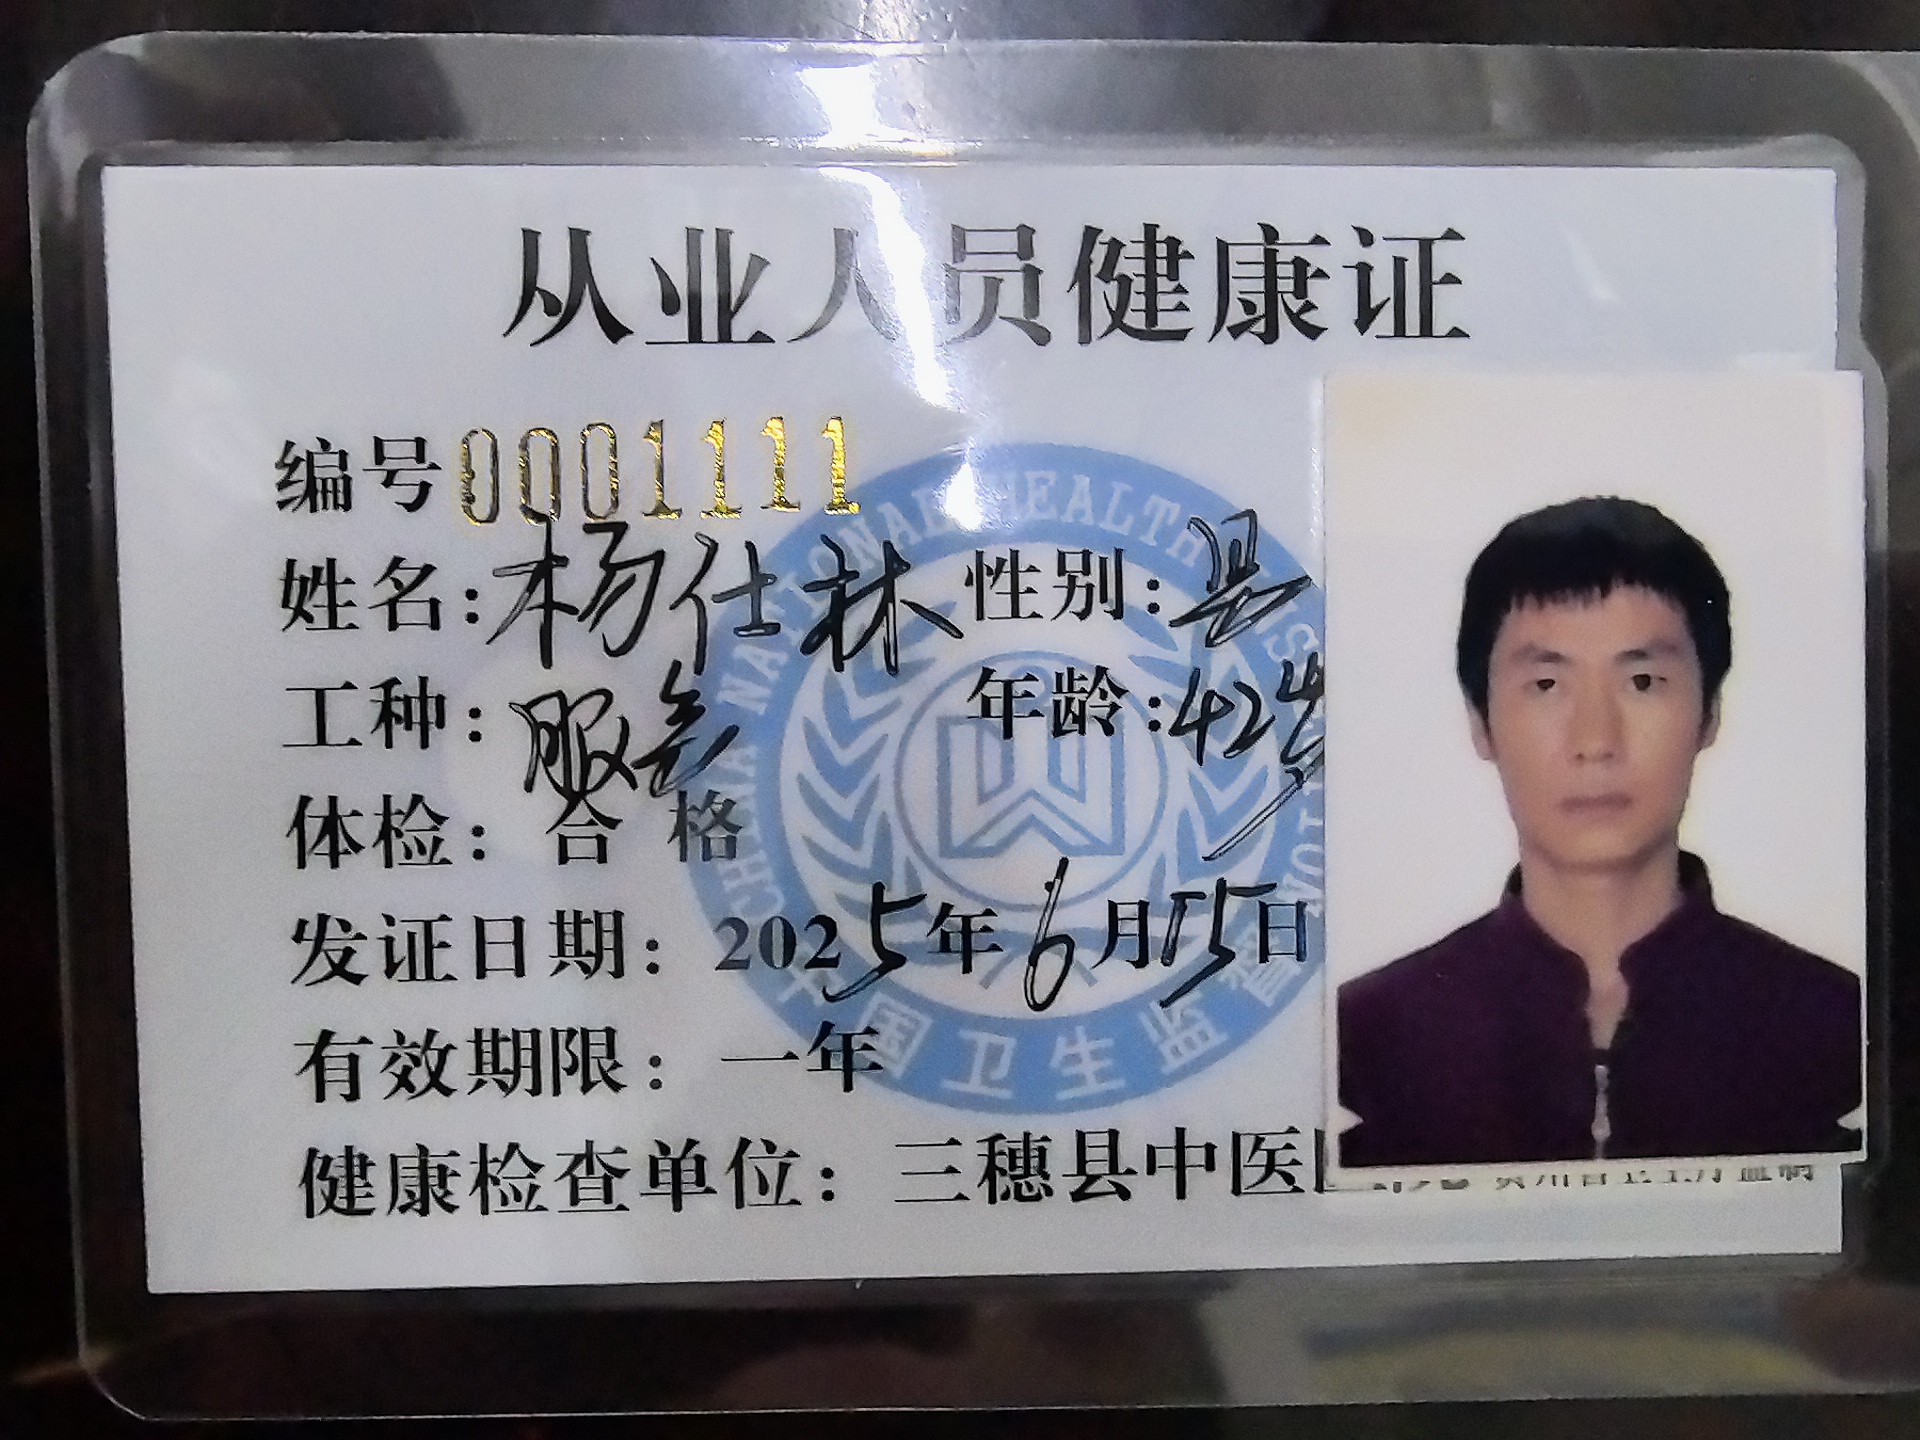 从业人员健康证
编号 0001111
姓名：杨仕林 性别：男
工种：服务 年龄：42岁
体检：合格
发证日期：2025年6月15日
有效期限：一年
健康检查单位：三穗县中医
CHINA NATIONAL HEALTH
中国卫生监督